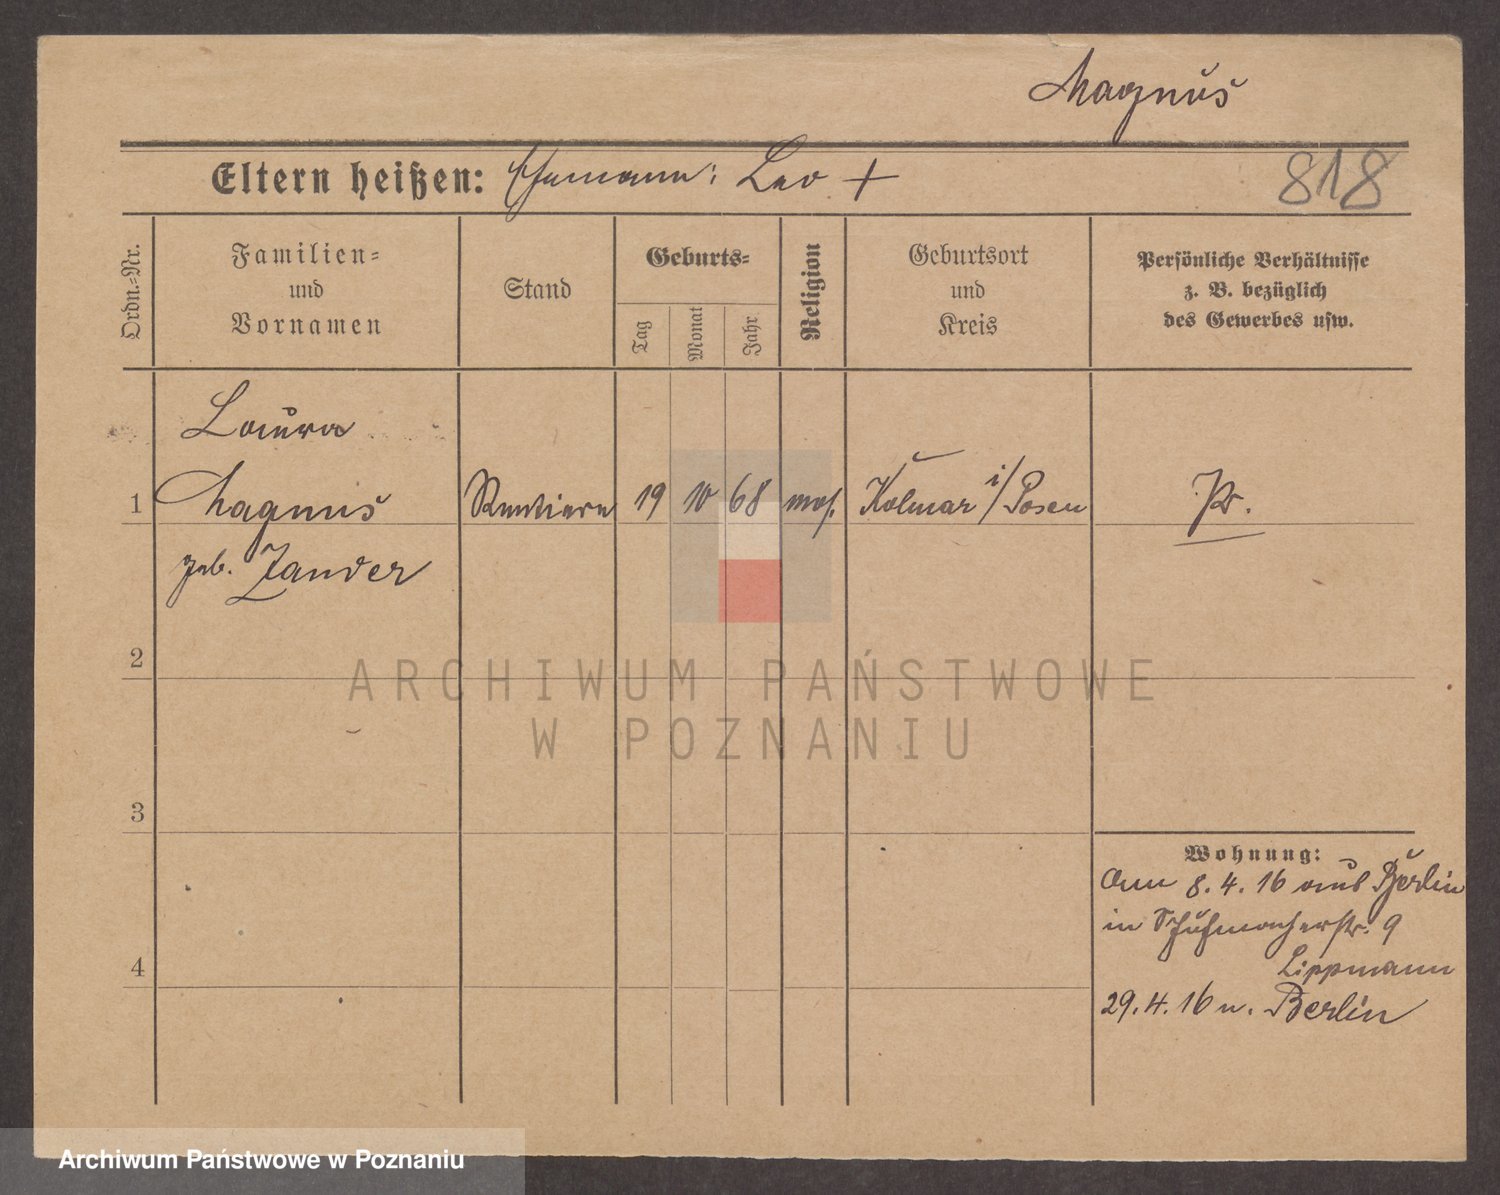 Magnus
Eltern heißen: Ehemann: Leo +
818
Ordn.-Nr.
Familien-
und
Vornamen
Stand
Geburts-
Tag
Monat
Jahr
Religion
Geburtsort
und
Kreis
Persönliche Verhältnisse
z. B. bezüglich
des Gewerbes usw.
Laura
1 Magnus Rentiere 19 10 68 mos. Kolmar i/Posen Pr.
geb. Zander
2
3
4
Wohnung:
Am 8.4.16 aus Berlin
in Schuhmacherstr. 9
Lippmann
29.4.16 n. Berlin
ARCHIWUM PAŃSTWOWE
W POZNANIU
Archiwum Państwowe w Poznaniu